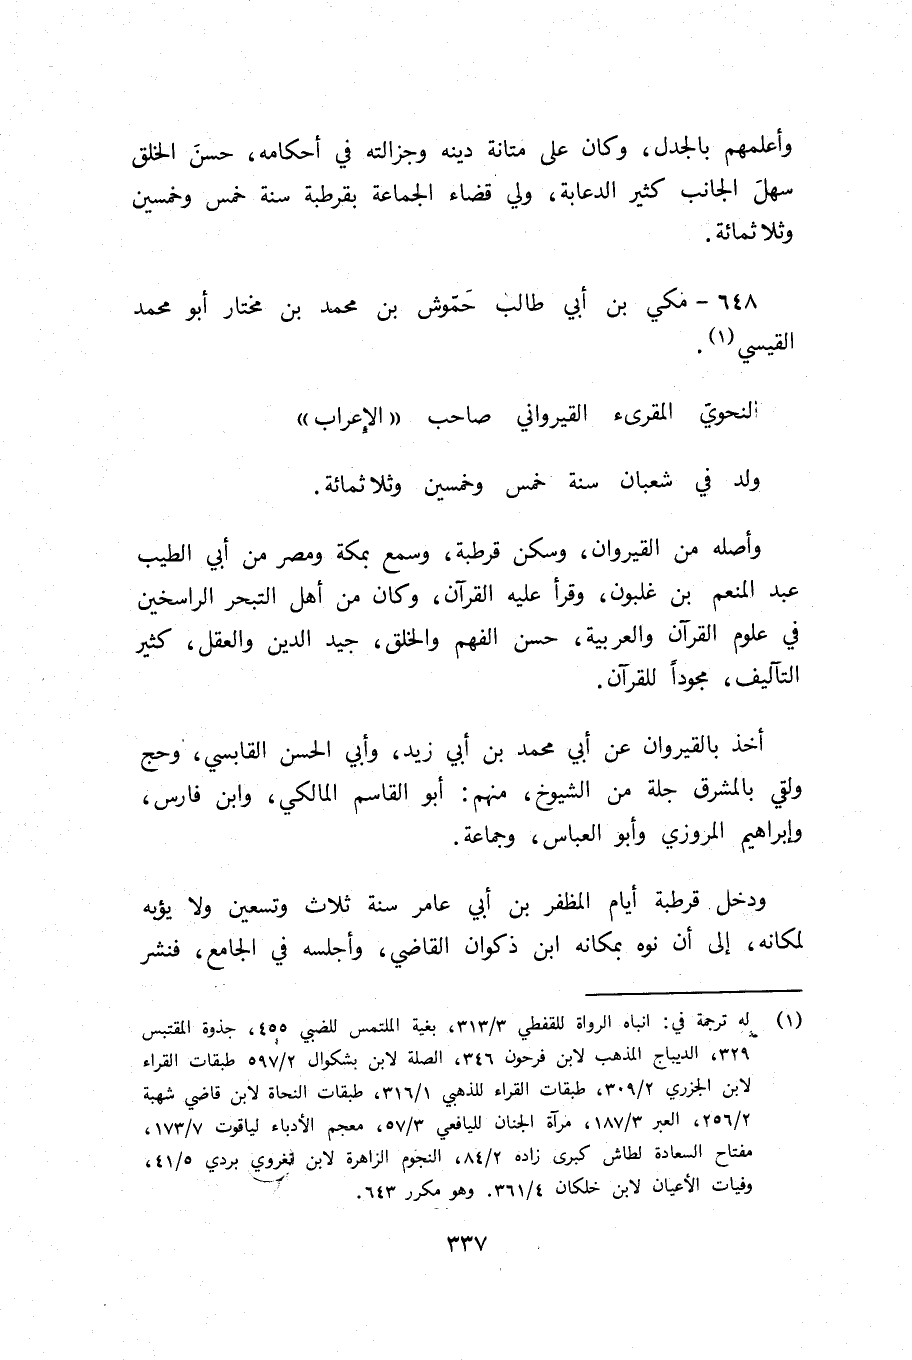 وأعلمهم بالجدل، وكان على متانة دينه وجزالته في أحكامه، حسنَ الخلق
سهلَ الجانب كثير الدعابة، ولي قضاء الجماعة بقرطبة سنة خمس وخمسين
وثلاثمائة.
٦٤٨ - مكي بن أبي طالب حَمّوش بن محمد بن مختار أبو محمد
القيسي(١).
النحويّ المقرىء القيرواني صاحب «الإعراب»
ولد في شعبان سنة خمس وخمسين وثلاثمائة.
وأصله من القيروان، وسكن قرطبة، وسمع بمكة ومصر من أبي الطيب
عبد المنعم بن غلبون، وقرأ عليه القرآن، وكان من أهل التبحر الراسخين
في علوم القرآن والعربية، حسن الفهم والخلق، جيد الدين والعقل، كثير
التآليف، مجوداً للقرآن.
أخذ بالقيروان عن أبي محمد بن أبي زيد، وأبي الحسن القابسي، وحج
ولقي بالمشرق جلة من الشيوخ، منهم: أبو القاسم المالكي، وابن فارس،
وإبراهيم المروزي وأبو العباس، وجماعة.
ودخل قرطبة أيام المظفر بن أبي عامر سنة ثلاث وتسعين ولا يؤبه
لمكانه، إلى أن نوه بمكانه ابن ذكوان القاضي، وأجلسه في الجامع، فنشر
(١) له ترجمة في: انباه الرواة للقفطي ٣١٣/٣، بغية الملتمس للضبي ٤٥٥، جذوة المقتبس
٣٢٩، الديباج المذهب لابن فرحون ٣٤٦، الصلة لابن بشكوال ٥٩٧/٢ طبقات القراء
لابن الجزري ٣٠٩/٢، طبقات القراء للذهبي ٣١٦/١، طبقات النحاة لابن قاضي شهبة
٢٥٦/٢، العبر ١٨٧/٣، مرآة الجنان لليافعي ٥٧/٣، معجم الأدباء لياقوت ١٧٣/٧،
مفتاح السعادة لطاش كبرى زاده ٨٤/٢، النجوم الزاهرة لابن تغروي بردي ٤١/٥،
وفيات الأعيان لابن خلكان ٣٦١/٤. وهو مكرر ٦٤٣.
٣٣٧